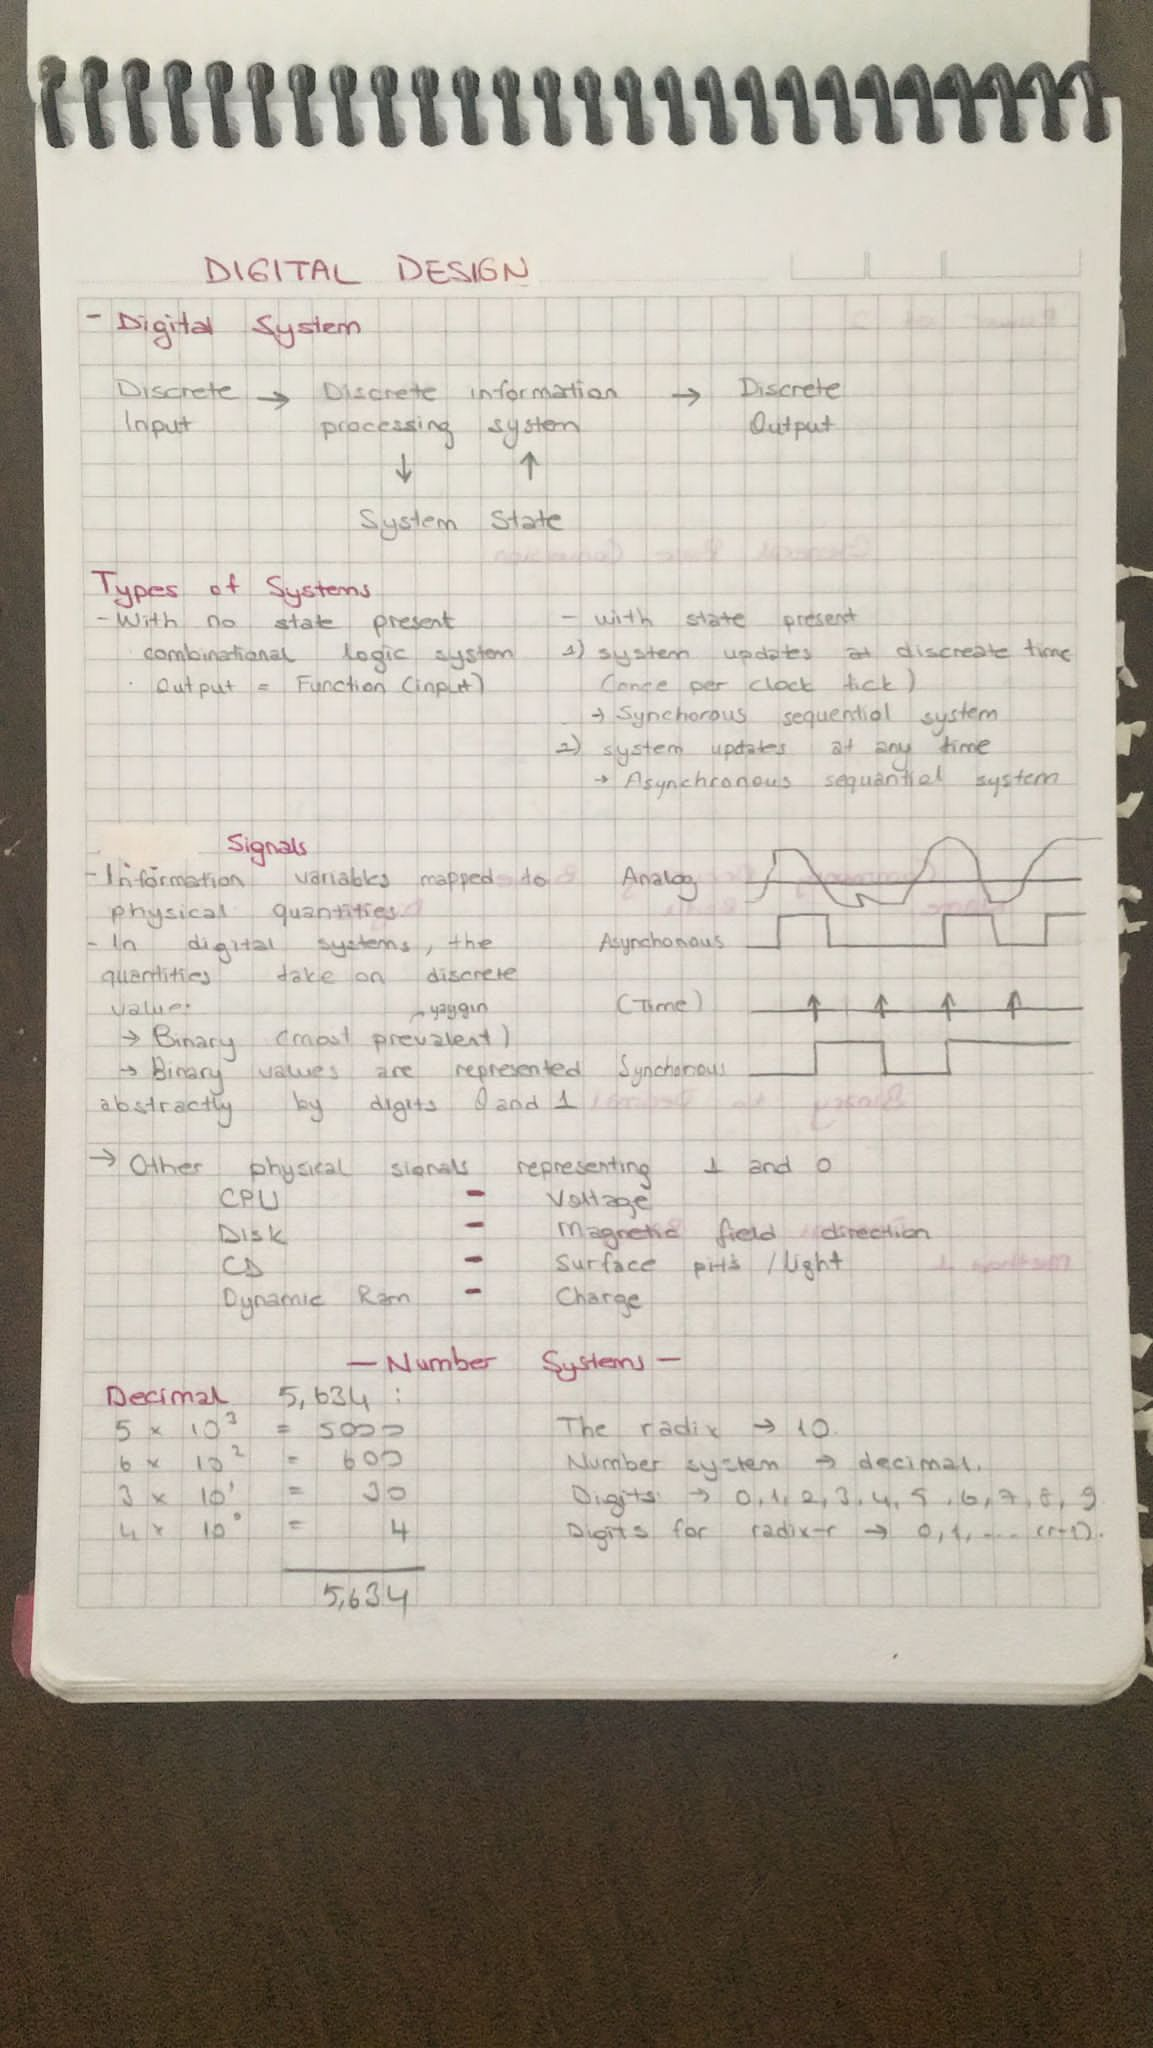 DIGITAL DESIGN
- Digital System
Discrete → Discrete information → Discrete
Input processing system Output
↓ ↑
System State
Types of Systems
- With no state present
combinational logic system
· Output = Function (input)
- with state present
1) system updates at discreate time
(once per clock tick)
→ Synchorous sequential system
2) system updates at any time
→ Asynchronous sequantial system
Signals
- Information variables mapped to
physical quantities.
- In digital systems, the
quantities take on discrete
value.
yaygın
→ Binary (most prevalent)
→ Binary values are represented
abstractly by digits 0 and 1
Analog
Asynchonous
(Time)
Synchonous
→ Other physical signals representing 1 and 0
CPU - Voltage
Disk - Magnetic field direction
CD - Surface pits / light
Dynamic Ram - Charge
- Number Systems -
Decimal 5,634 :
5 x 10³ = 5000
6 x 10² = 600
3 x 10¹ = 30
4 x 10⁰ = 4
5,634
The radix → 10.
Number system → decimal.
Digits → 0,1,2,3,4,5,6,7,8,9.
Digits for radix-r → 0,1,.... (r-1).